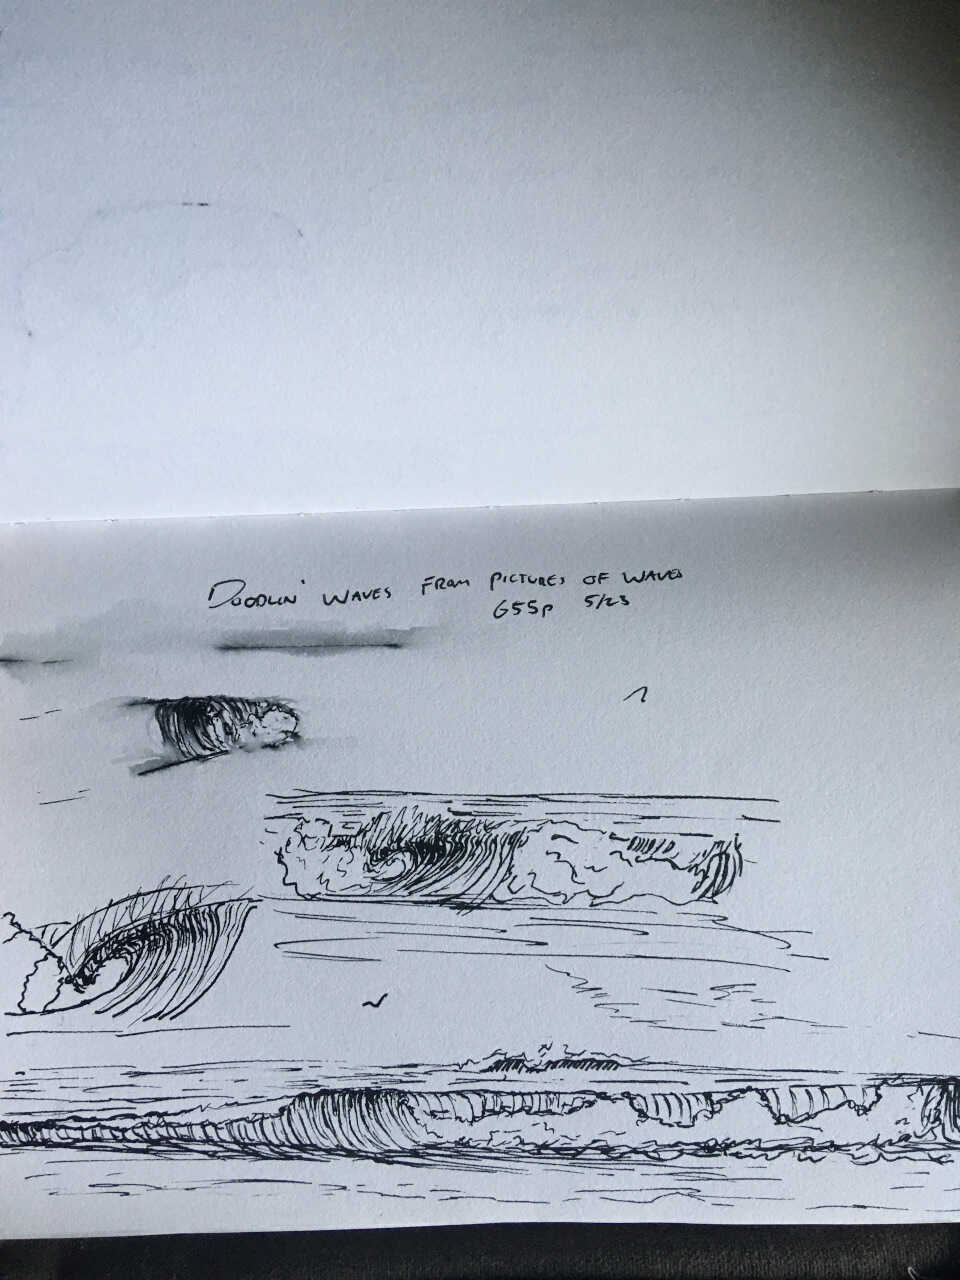 DOODLIN' WAVES FROM PICTURES OF WAVES
655p 5/23